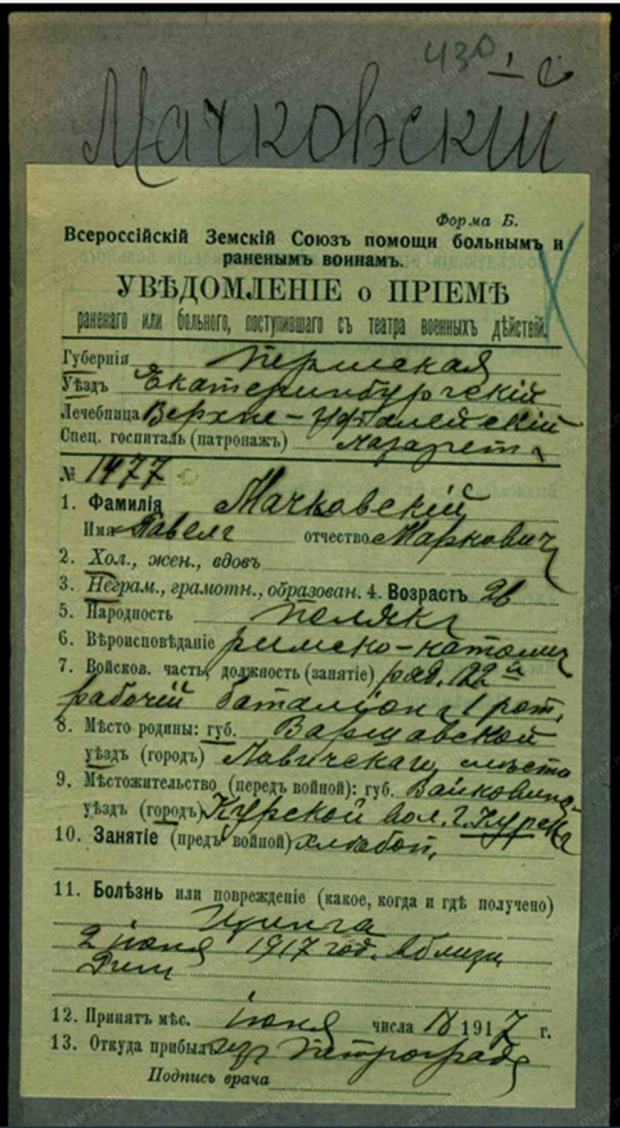 430 1 с
Мачковскій
Форма Б.
Всероссійскій Земскій Союзъ помощи больнымъ и
раненымъ воинамъ.
УВѢДОМЛЕНІЕ о ПРІЕМѢ
раненаго или больного, поступившаго съ театра военныхъ дѣйствій.
Губернія Пермская
Уѣздъ Екатеринбургскій
Лечебница Верхне-Уфалейскій
Спец. госпиталь (патронажъ) лазаретъ
№ 1477
1. Фамилія Мачковскій
Имя Павелъ отчество Марковичъ
2. Хол., жен., вдовъ
3. Неграм., грамотн., образован. 4. Возрастъ 26
5. Народность полякъ
6. Вѣроисповѣданіе римско-католич
7. Войсков. часть, должность (занятіе) ряд. 122й
рабочій баталіонъ 1 рот.
8. Мѣсто родины: губ. Варшавской
уѣздъ (городъ) мѣсто
9. Мѣстожительство (передъ войной): губ.
уѣздъ (городъ) Курской вол. г. Курска
10. Занятіе (предъ войной) хлѣбоп.
11. Болѣзнь или поврежденіе (какое, когда и гдѣ получено)
Цынга
2 іюня 1917 год. вблизи
Риги
12. Принятъ мѣс. іюня числа 18 1917 г.
13. Откуда прибылъ изъ Петрограда
Подпись врача